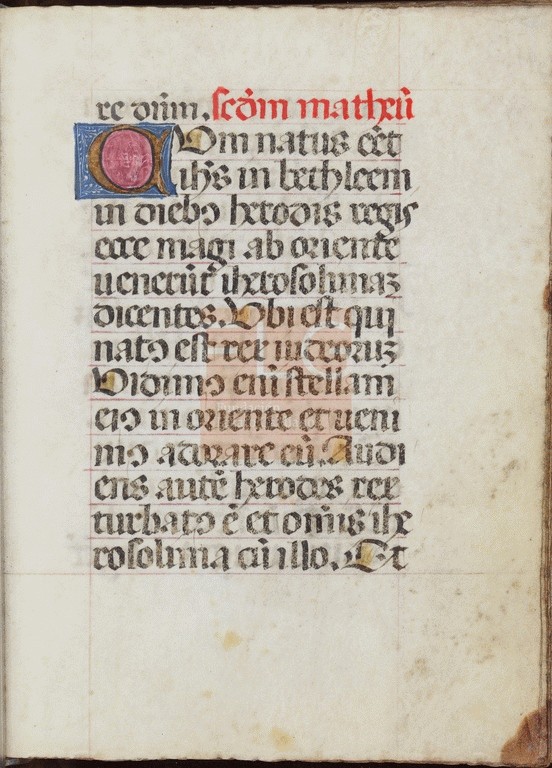 re dn̄m. scd̄m matheū
CVm natus eēt
ihs̄ in bethleem
in diebꝰ herodis regis
ecce magi ab oriente
uenerūt iherosolimaz
dicentes. Vbi est qui
natꝰ est rex iudeoruz
Vidimꝰ eni stellam
eiꝰ in oriente et ueni
mꝰ adorare eū. Audi
ens autē herodes rex
turbatꝰ ē et om̄is ihe
rosolima cū illo. Et